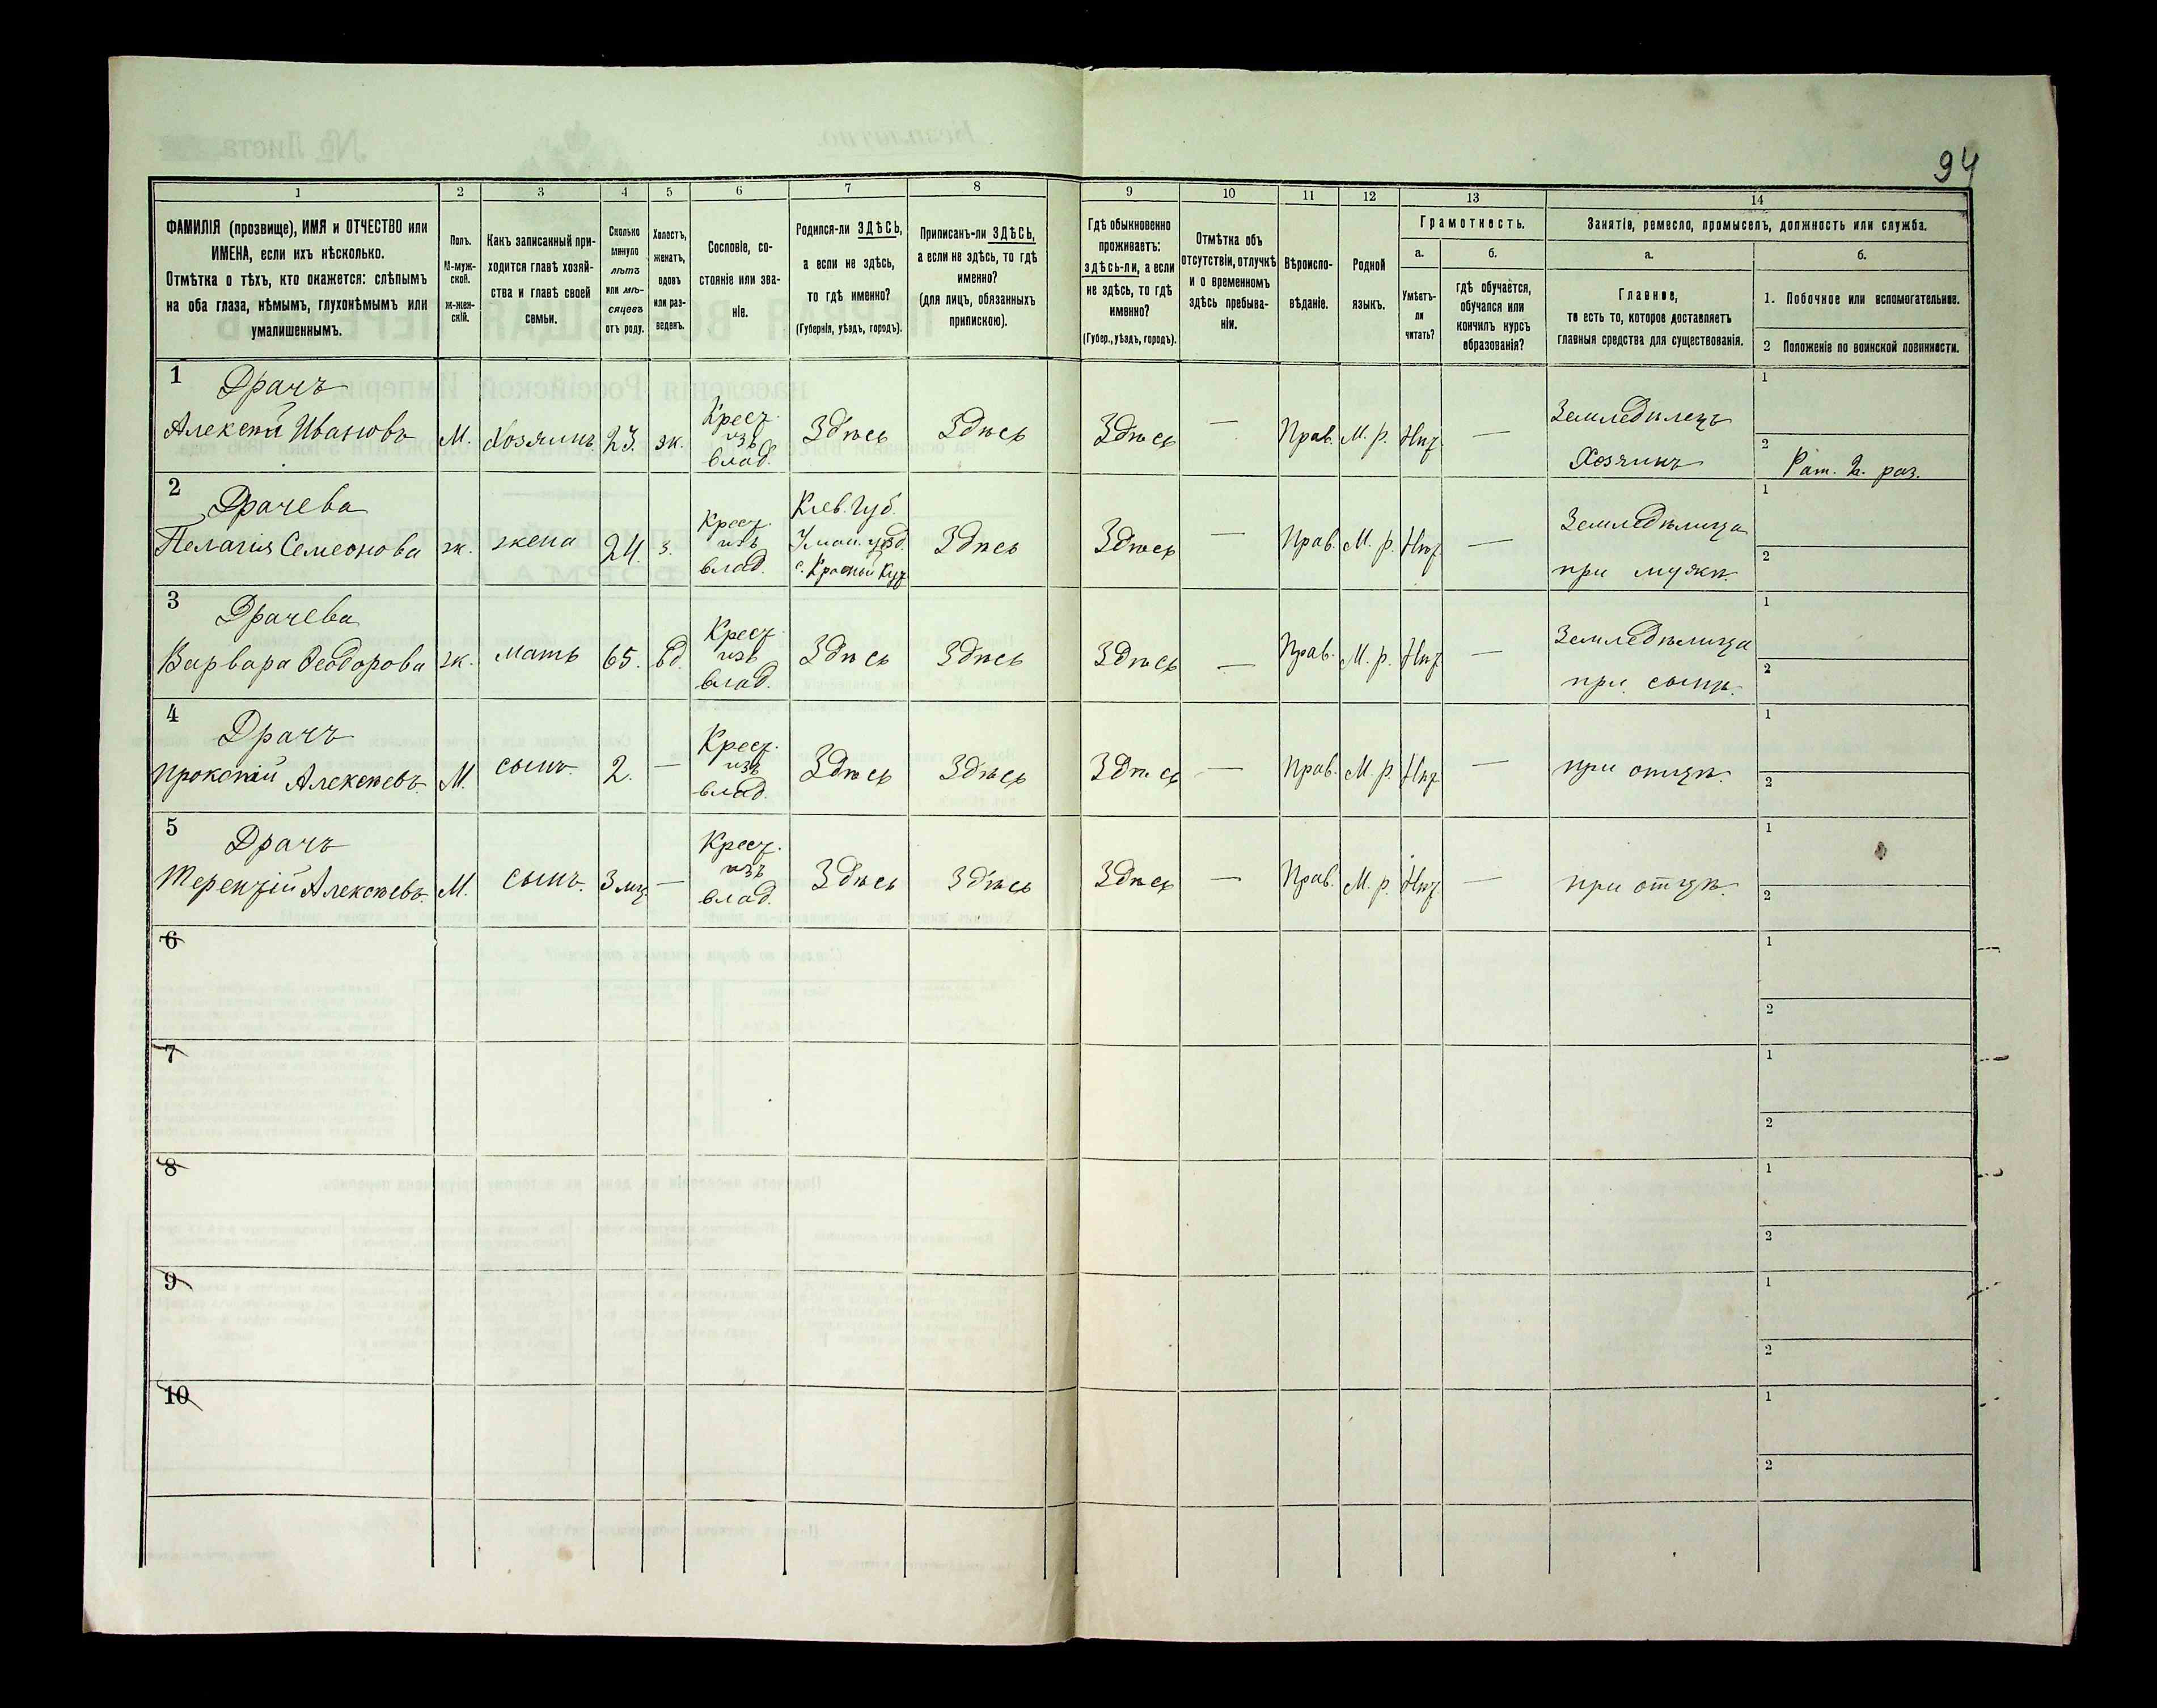 94
1 2 3 4 5 6 7 8 9 10 11 12 13 14
ФАМИЛІЯ (прозвище), ИМЯ и ОТЧЕСТВО или
ИМЕНА, если ихъ нѣсколько.
Отмѣтка о тѣхъ, кто окажется: слѣпымъ
на оба глаза, нѣмымъ, глухонѣмымъ или
умалишеннымъ.
Полъ.
М-муж-
ской.
ж-жен-
скій.
Какъ записанный при-
ходится главѣ хозяй-
ства и главѣ своей
семьи.
Сколько
минуло
лѣтъ
или мѣ-
сяцевъ
отъ роду.
Холостъ,
женатъ,
вдовъ
или раз-
веденъ.
Сословіе, со-
стояніе или зва-
ніе.
Родился-ли ЗДѢСЬ,
а если не здѣсь,
то гдѣ именно?
(Губернія, уѣздъ, городъ).
Приписанъ-ли ЗДѢСЬ,
а если не здѣсь, то гдѣ
именно?
(для лицъ, обязанныхъ
припискою).
Гдѣ обыкновенно
проживаетъ:
здѣсь-ли, а если
не здѣсь, то гдѣ
именно?
(Губер., уѣздъ, городъ).
Отмѣтка объ
отсутствіи, отлучкѣ
и о временномъ
здѣсь пребыва-
ніи.
Вѣроиспо-
вѣданіе.
Родной
языкъ.
Грамотность.
а.
Умѣетъ-
ли
читать?
б.
гдѣ обучается,
обучался или
кончилъ курсъ
образованія?
Занятіе, ремесло, промыселъ, должность или служба.
а.
Главное,
то есть то, которое доставляетъ
главныя средства для существованія.
б.
1. Побочное или вспомогательное.
2 Положеніе по воинской повинности.
1 Драчъ
Алексѣй Ивановъ М. Хозяинъ 23. ж. Крест. изъ влад. Здѣсь Здѣсь Здѣсь — Прав. М. р. Нѣт. — Земледѣлецъ
Хозяинъ
1
2 Рат. 2. раз.
2 Драчева
Пелагія Семеонова ж. жена 24. з. Крест. изъ влад. Кіев. Губ.
Уман. уѣзд.
с. Красный Кут Здѣсь Здѣсь — Прав. М. р. Нѣт — Земледѣлица
при мужѣ.
1
2
3 Драчева
Варвара Ѳеодорова ж. мать 65. вд. Крест. изъ влад. Здѣсь Здѣсь Здѣсь — Прав. М. р. Нѣт — Земледѣлица
при сынѣ.
1
2
4 Драчъ
Прокопій Алексѣевъ. М. сынъ. 2. — Крест. изъ влад. Здѣсь Здѣсь Здѣсь — Прав. М. р. Нѣт — при отцѣ.
1
2
5 Драчъ
Терентій Алексѣевъ. М. сынъ. 3 мѣс — Крест. изъ влад. Здѣсь Здѣсь Здѣсь — Прав. М. р. Нѣт. — при отцѣ.
1
2
6
1
2
7
1
2
8
1
2
9
1
2
10
1
2